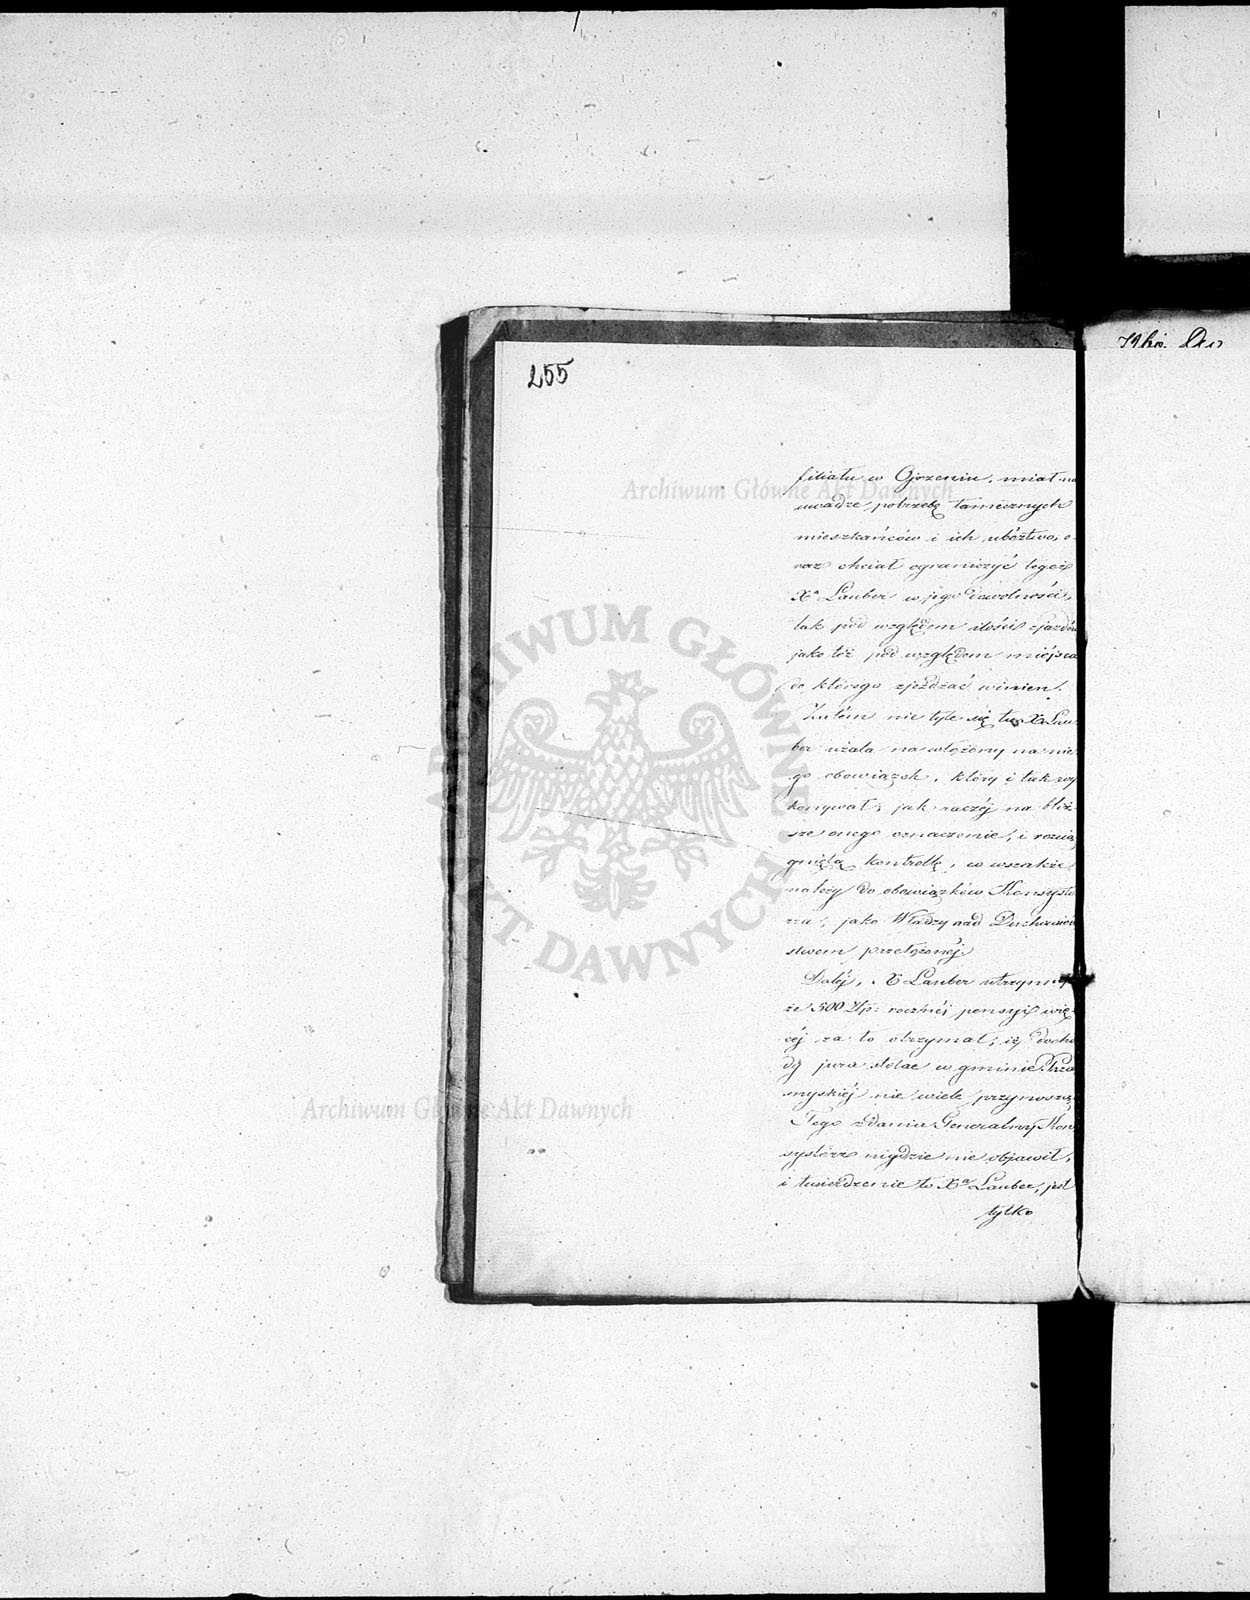 255
filiału w Ojrzeniu, miał na
uwadze potrzebę tamecznych
mieszkańców i ich ubóztwo, o-
raz chciał ograniczyć tegoż
Xa Lauber w jego dowolności,
tak pod względem ilości zjazdów
jako téż pod względem miejsca
do którego zjeżdzać winien.
Zatém nie tyle się tu X Lau-
ber użala na włożony na nie-
go obowiązek, który i tak wy
konywał, jak raczéj na bliż-
sze onego oznaczenie, i rozcią
gniętą kontrollę, co wszakże
należy do obowiązków Konsysto
rza, jako Władzy nad Duchowień
stwem przełożonéj.
Daléj, X Lauber utrzymuje
że 500 Złp: rocznéj pensyi wię-
céj za to otrzymał, iż docho
dy jura stolae w gminie Prza
snyskiéj nie wiele przynoszą
Tego zdania Generalny Kon
systérz nigdzie nie objawił,
i twierdzenie to Xa Lauber, jest
tylko
Archiwum Główne Akt Dawnych
ARCHIWUM GŁÓWNE AKT DAWNYCH
Archiwum Główne Akt Dawnych